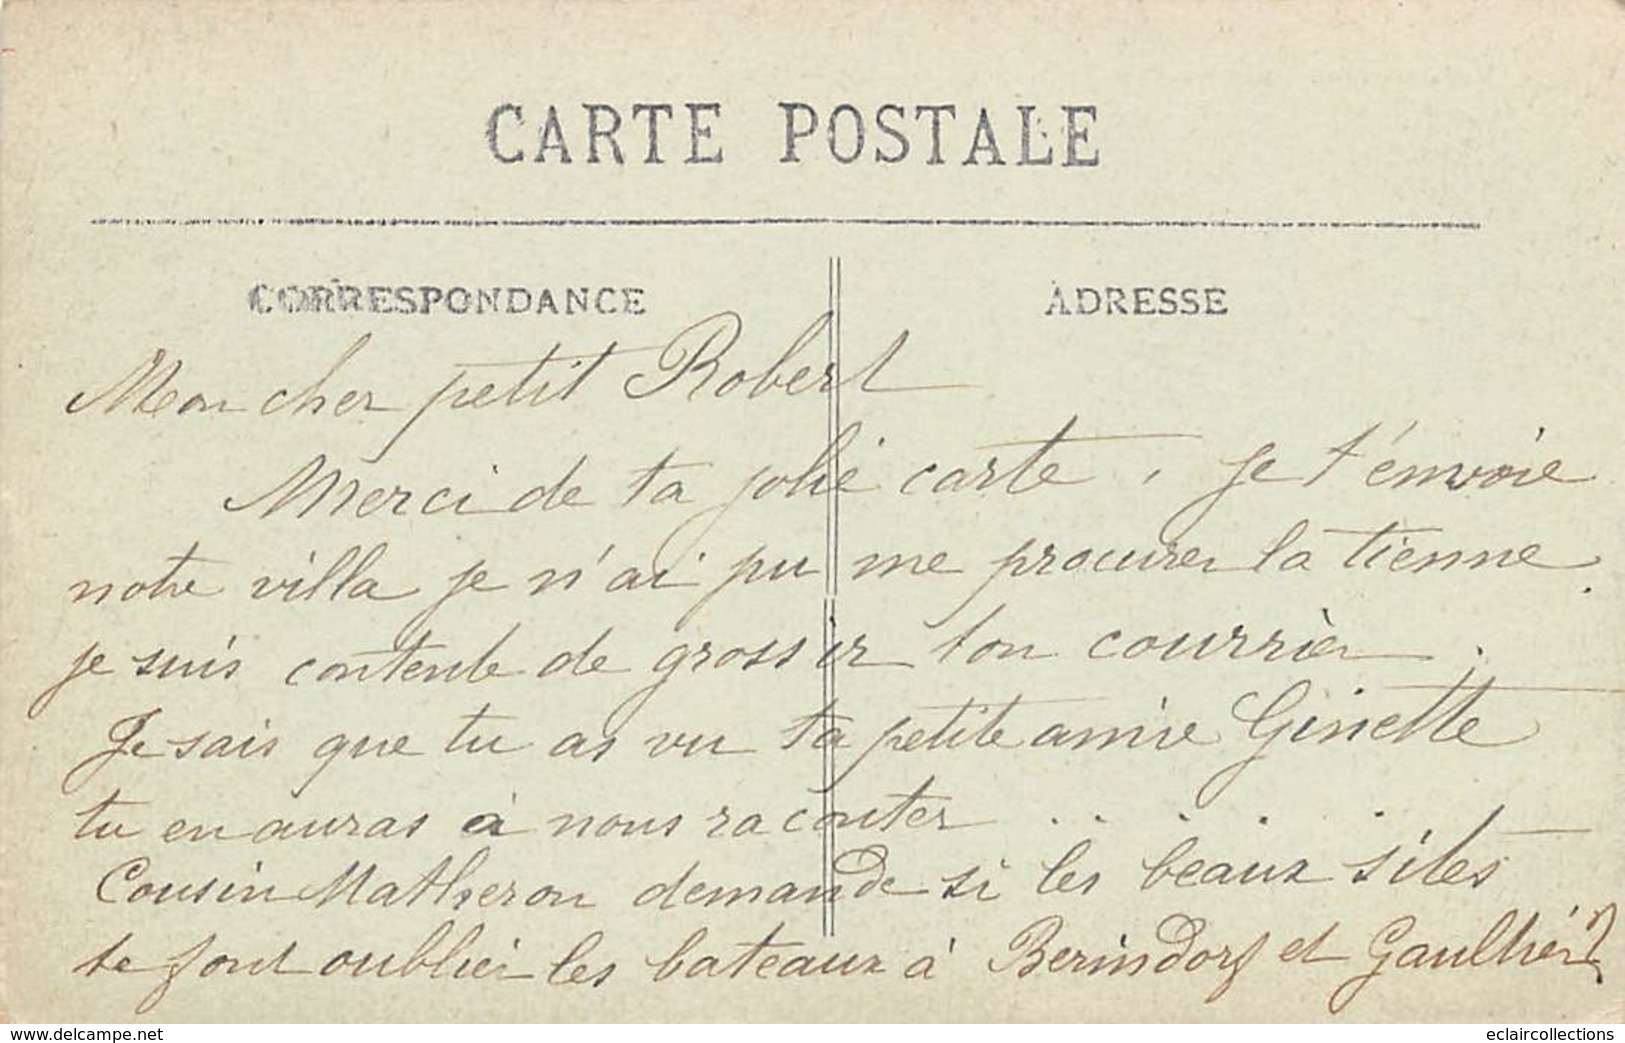 CARTE POSTALE
CORRESPONDANCE
ADRESSE
Mon cher petit Robert
Merci de ta jolie carte, je t'envoie
notre villa je n'ai pu me procurer la tienne.
je suis contente de grossir ton courrier.
Je sais que tu as vu ta petite amie Ginette
tu en auras à nous raconter . . . . .
Cousin Matheron demande si les beaux sites
te font oublier les bateaux à Berindorf et Gaulthier?
www.delcampe.net
eclaircollections